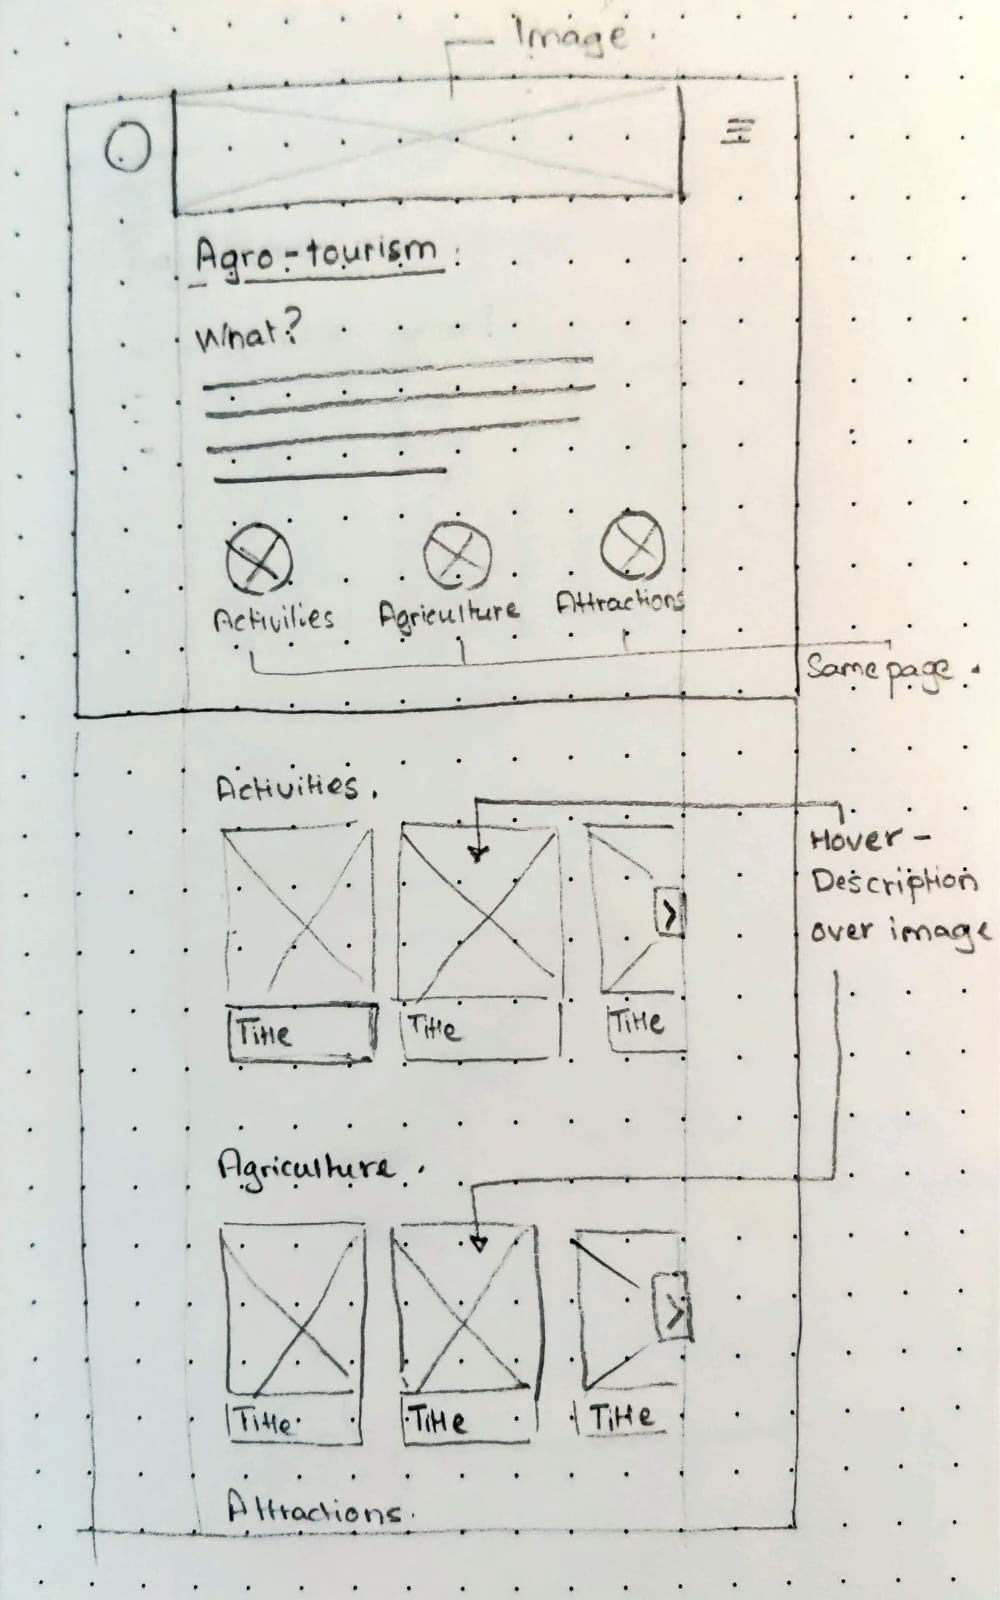 Image.
Agro-tourism
What?
Activities Agriculture Attractions
Same page.
Activities.
Hover -
Description
over image
Title Title Title
Agriculture.
Title Title Title
Attractions.